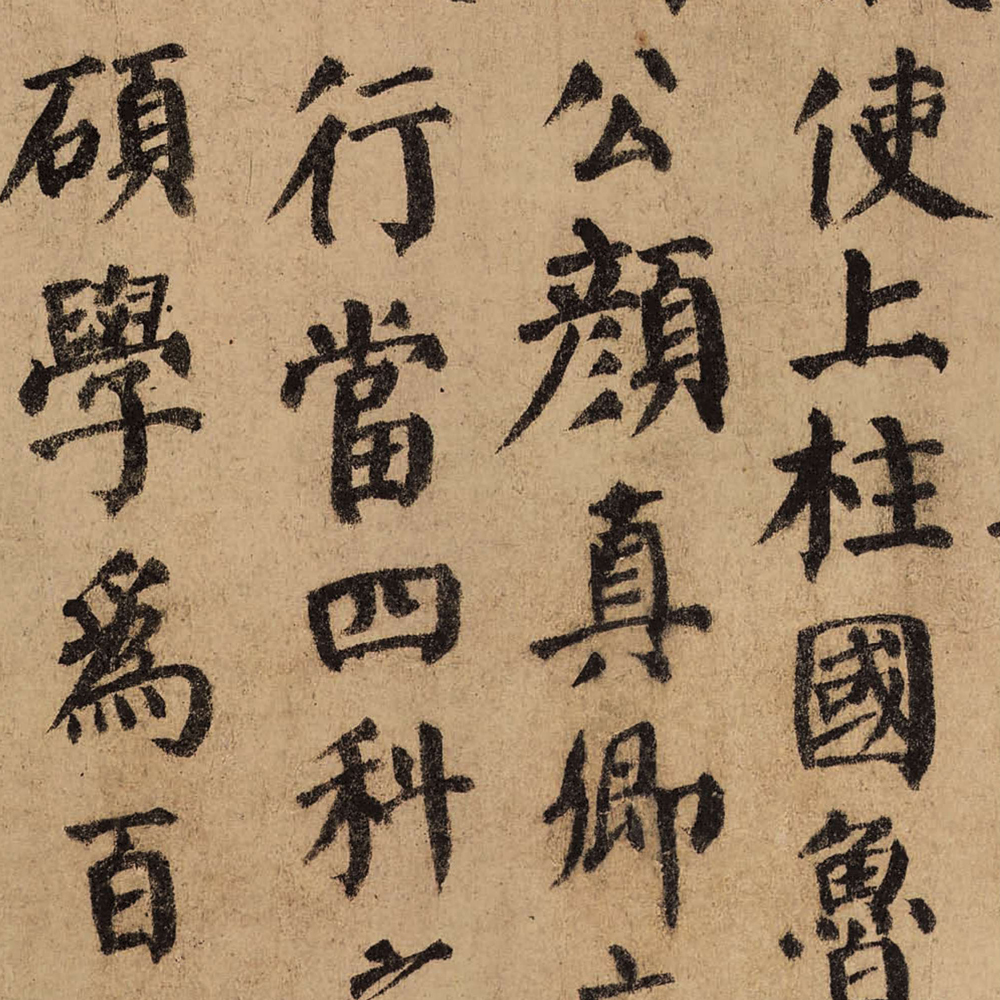 使上柱國魯
公顏真卿立
行當四科
碩學為百